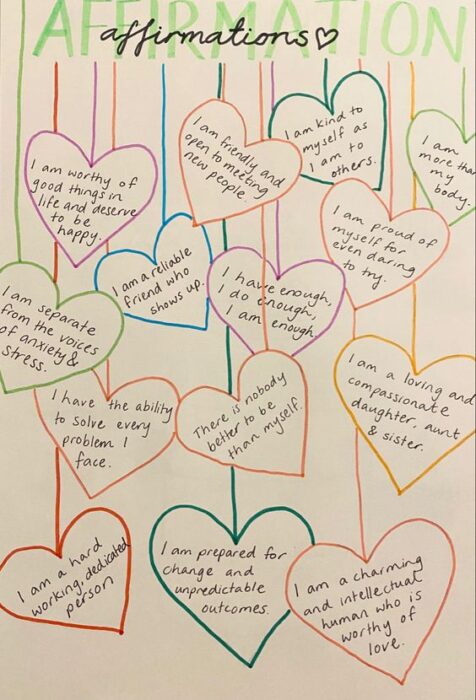 AFFIRMATION
affirmations
I am worthy of
good things in
life and deserve
to be
happy.
I am friendly and
open to meeting
new people.
I am kind to
myself as
I am to
others.
I am
more than
my
body.
I am a reliable
friend who
shows up.
I have enough,
I do enough,
I am enough.
I am proud of
myself for
even daring
to try.
I am separate
from the voices
of anxiety &
stress.
I have the ability
to solve every
problem I
face.
There is nobody
better to be
than myself.
I am a loving and
compassionate
daughter, aunt
& sister.
I am a hard
working, dedicated
person
I am prepared for
change and
unpredictable
outcomes.
I am a charming
and intellectual
human who is
worthy of
love.